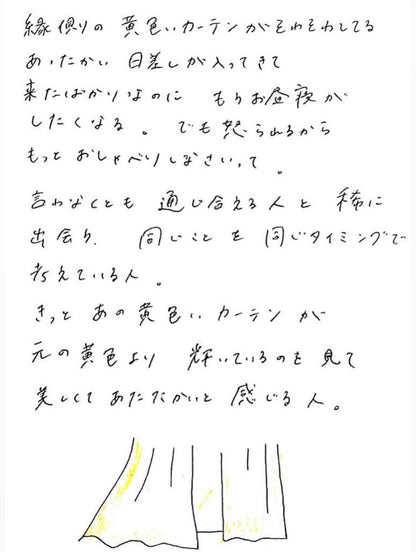 縁側の 黄色いカーテンがそわそわしてる
あったかい 日差しが入ってきて
来たばかりなのに もうお昼寝が
したくなる。でも怒られるから
もっと おしゃべりしなさいって。
言わなくとも 通じ合える人と 稀に
出会う. 同じことを同じタイミングで
考えている人。
きっと あの黄色い カーテン が
元の黄色より 輝いているのを 見て
美しくてあたたかいと 感じる人。